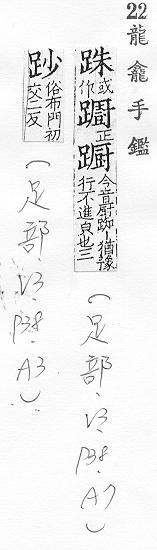 22龍龕手鑑
跦或作躕正蹰今音厨踟~猶豫行不進皃也三
(足部.V3.P38.A7)
䟞俗布門初交二反
(足部.V3.P38.A3)